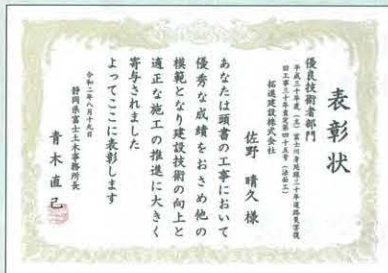 表彰状
優良技術者部門
平成三十年度(主)富士川身延線三十年道路災害復
旧工事三十年査定第四十五号(法面工)
拓進建設株式会社
佐野 晴久 様
あなたは頭書の工事において
優秀な成績をおさめ他の
模範となり建設技術の向上と
適正な施工の推進に大きく
寄与されました
よってここに表彰します
令和二年八月十九日
静岡県富士土木事務所長
青木直己